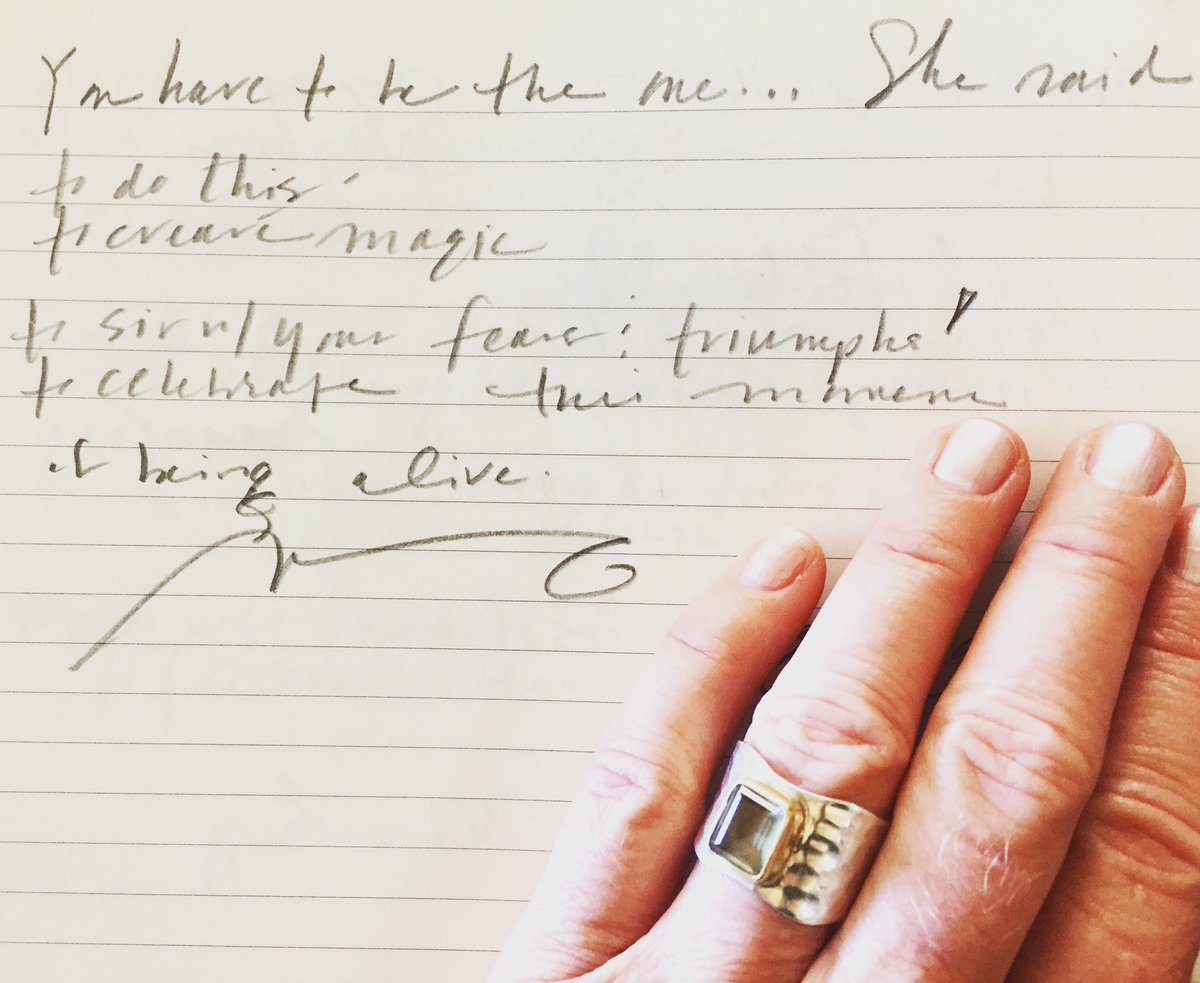 You have to be the one... She said
to do this.
to create magic
to your fears: triumphs
to celebrate this moment
of being alive.